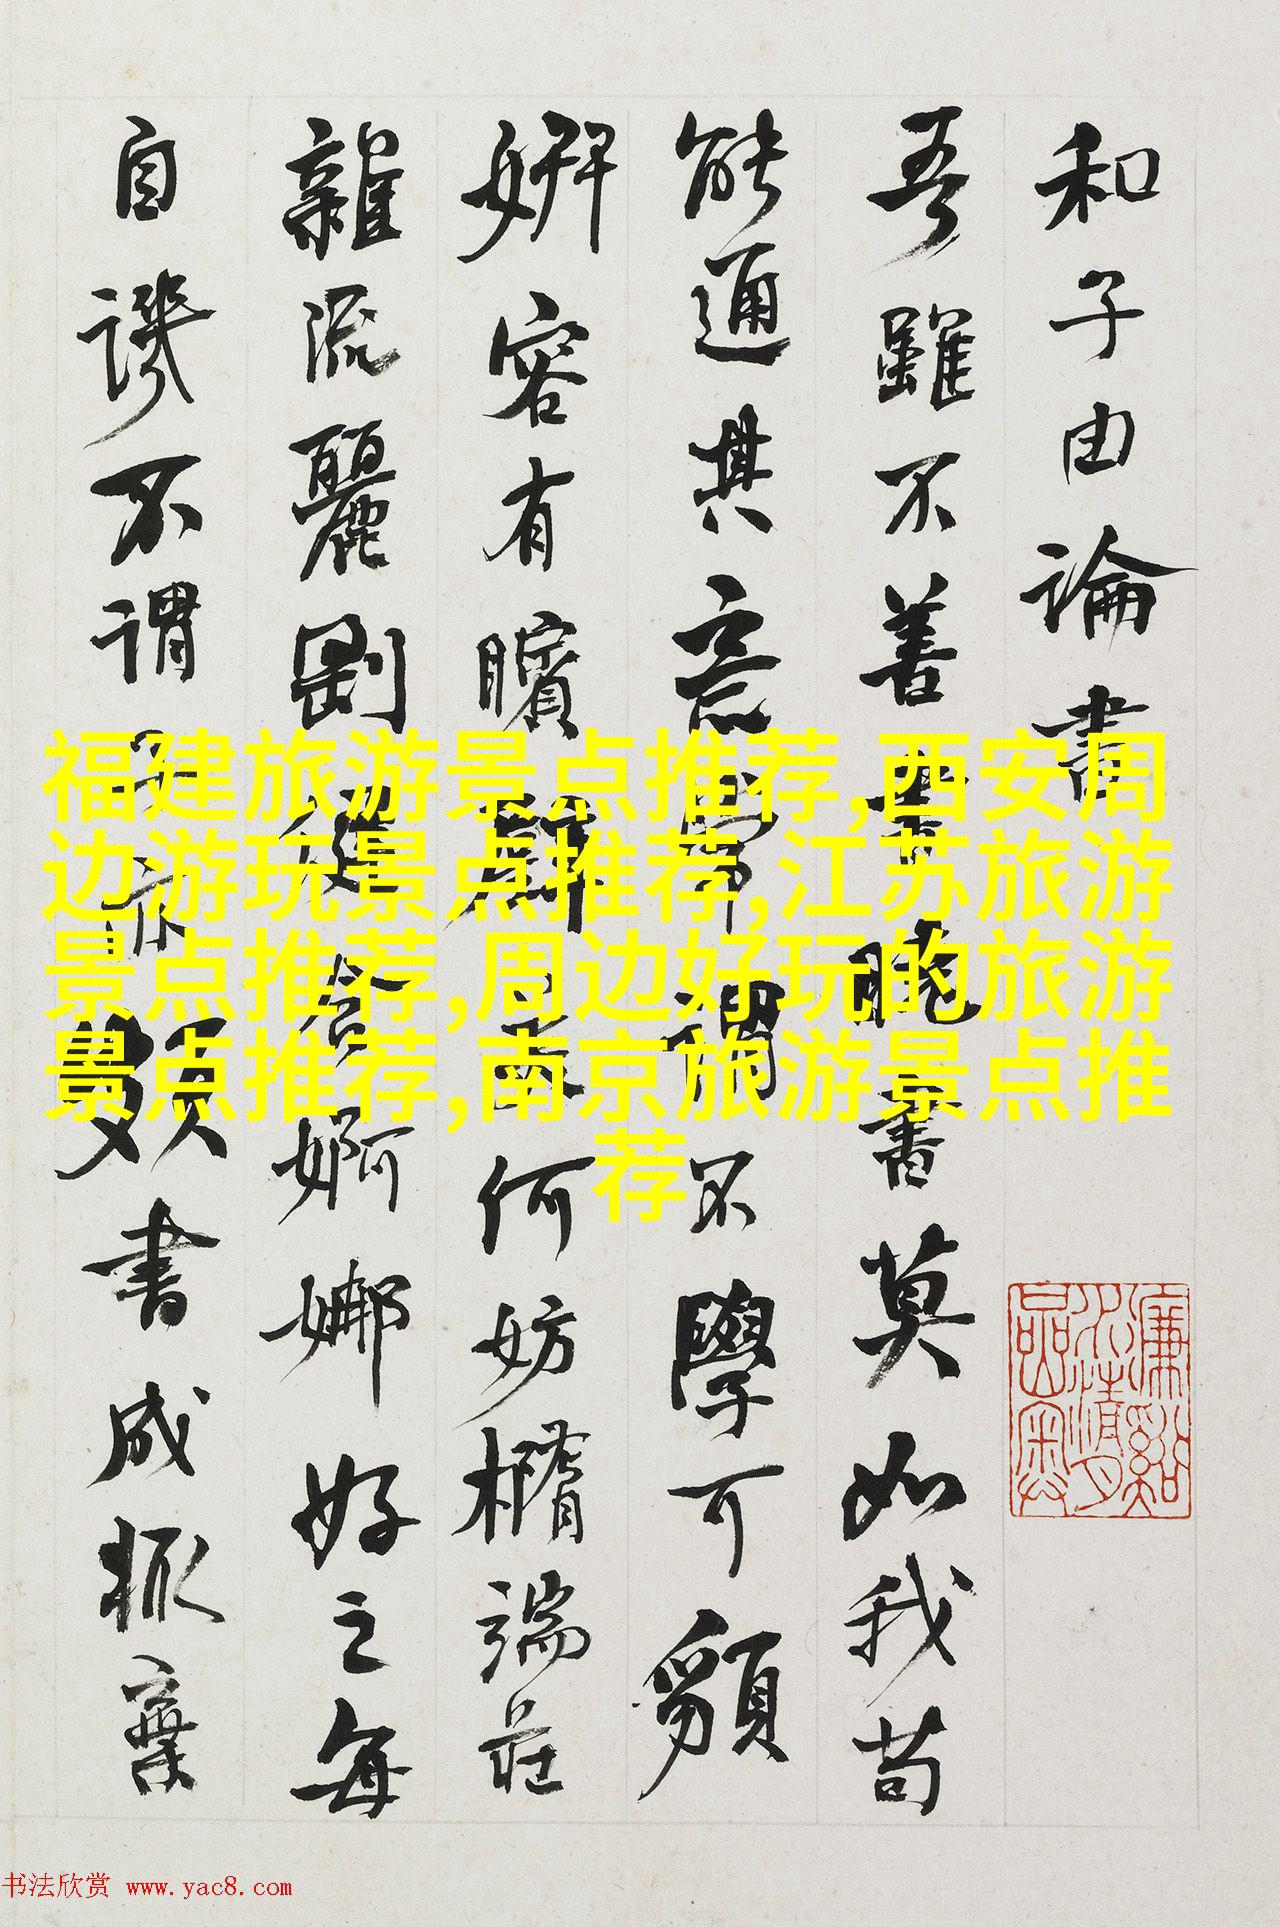 和子由論書
吾雖不善書曉書莫如我苟
能通其意常謂不學可䫉
姸容有矉璧美何妨橢端莊
雜流麗剛健含婀娜好之每
自譏不謂子亦頗書成輒棄
福建旅游景点推荐,西安周
边游玩景点推荐,江苏旅游
景点推荐,周边好玩的旅游
景点推荐,南京旅游景点推
荐
书法欣赏 www.yac8.com